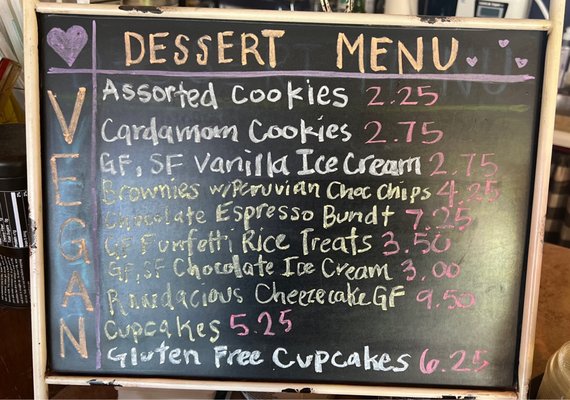 DESSERT MENU
VEGAN
Assorted Cookies 2.25
Cardamom Cookies 2.75
GF, SF Vanilla Ice Cream 2.75
Brownies w/Peruvian Choc Chips 4.25
Chocolate Espresso Bundt 7.25
GF Funfetti Rice Treats 3.50
GF, SF Chocolate Ice Cream 3.00
Cheezecake GF 9.50
Cupcakes 5.25
Gluten Free Cupcakes 6.25